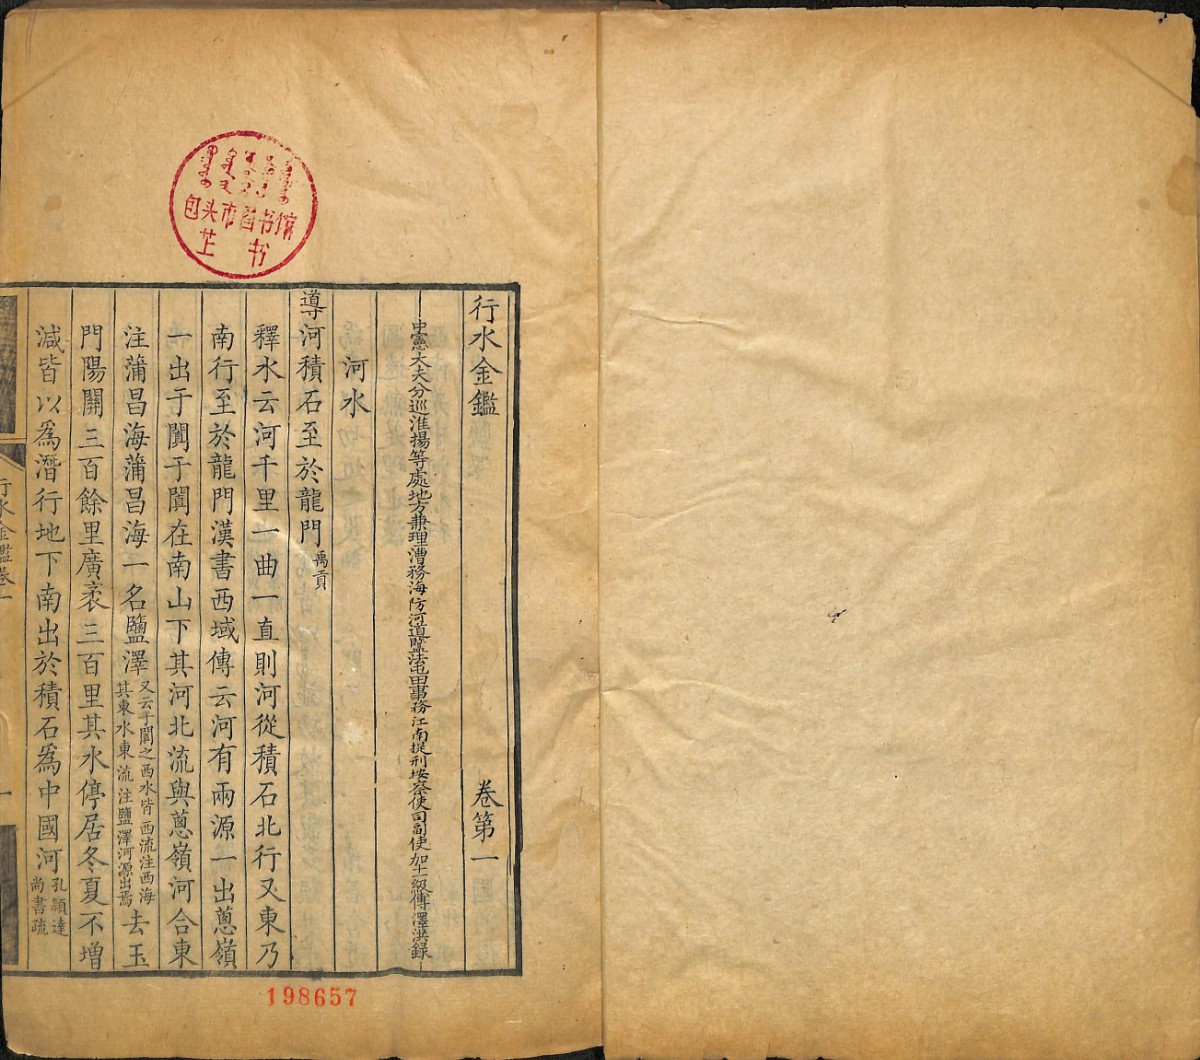 包头市图书馆
书
行水金鑑 卷第一
中憲大夫分巡淮揚等處地方兼理漕務海防河道鹽法屯田事務江南提刑按察使司副使加一級傅澤洪錄
河水
導河積石至於龍門禹貢
釋水云河千里一曲一直則河從積石北行又東乃
南行至於龍門漢書西域傳云河有兩源一出蔥嶺
一出于闐于闐在南山下其河北流與蔥嶺河合東
注蒲昌海蒲昌海一名鹽澤又云于闐之西水皆西流注西海其東水東流注鹽澤河源出焉去玉
門陽關三百餘里廣袤三百里其水停居冬夏不增
減皆以為潛行地下南出於積石為中國河孔穎達尚書疏
行水金鑑卷一
一
198657